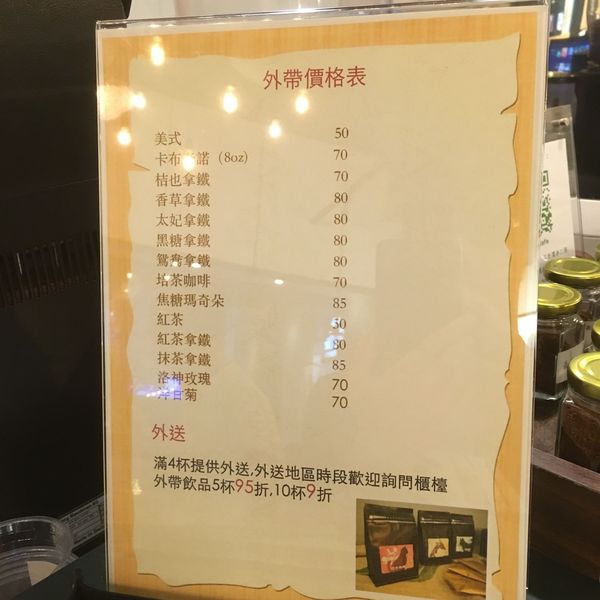 外帶價格表
美式 50
卡布 諾 (8oz) 70
桔也拿鐵 70
香草拿鐵 80
太妃拿鐵 80
黑糖拿鐵 80
鴛鴦拿鐵 80
焙茶咖啡 70
焦糖瑪奇朵 85
紅茶 50
紅茶拿鐵 80
抹茶拿鐵 85
洛神玫瑰 70
洋甘菊 70
外送
滿4杯提供外送,外送地區時段歡迎詢問櫃檯
外帶飲品5杯95折,10杯9折